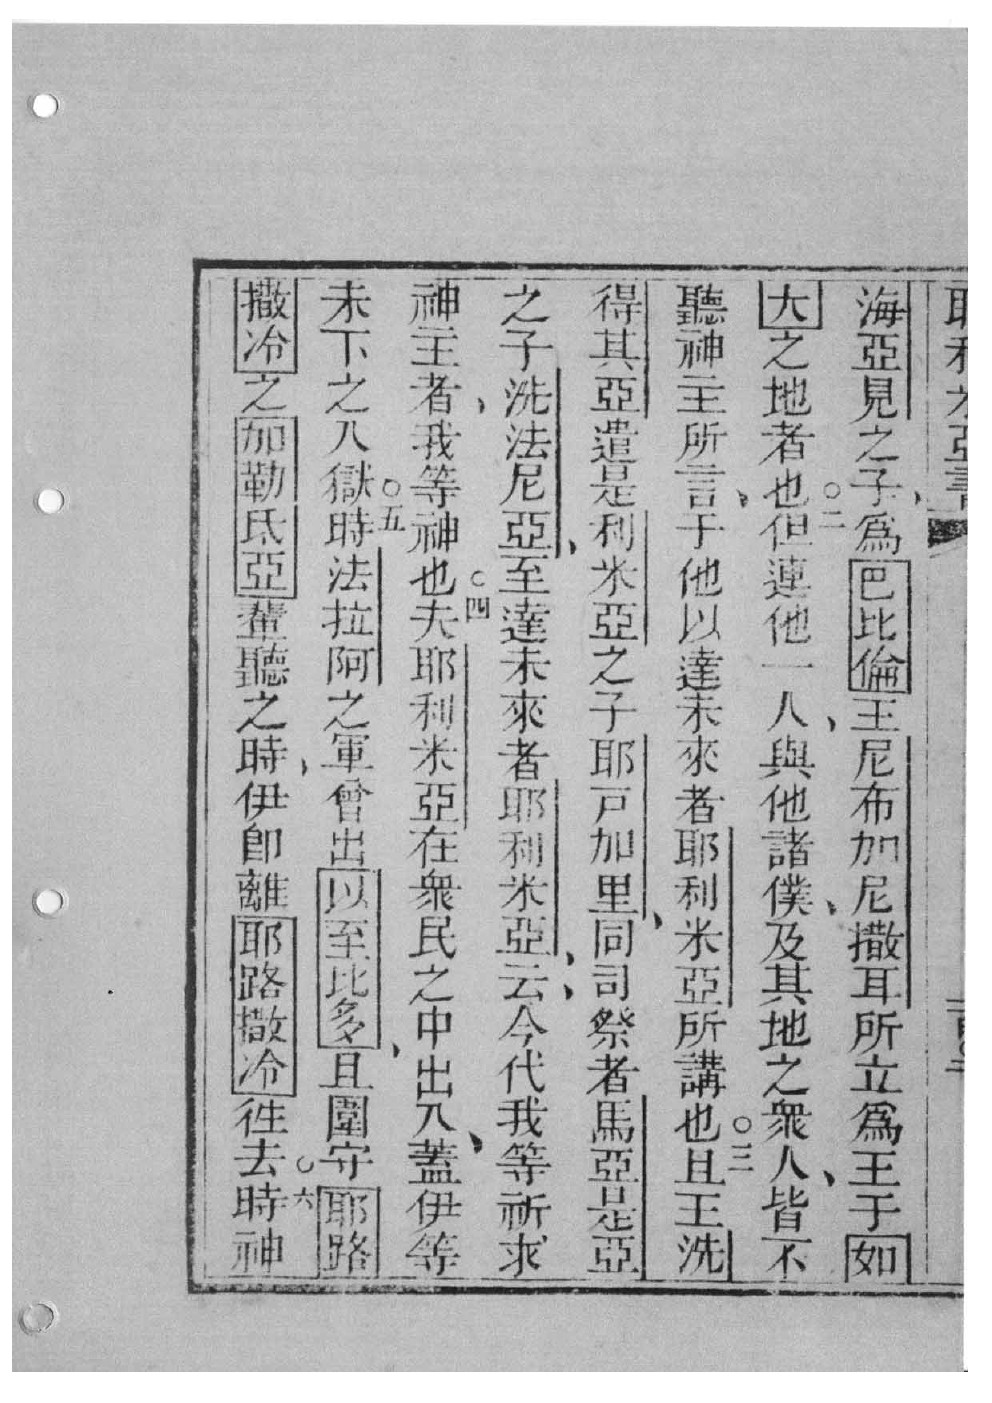 耶利米亞書
海亞見之子、爲巴比倫王尼布加尼撒耳所立爲王于如
大之地者也○二但連他一人、與他諸僕、及其地之衆人、皆不
聽神主所言、于他以達未來者耶利米亞所講也○三且王洗
得其亞遣是利米亞之子耶戸加里、同司祭者馬亞是亞
之子洗法尼亞、至達未來者耶利米亞、云、今代我等祈求
神主者、我等神也○四夫耶利米亞在衆民之中出入、蓋伊等
未下之入獄○五時法拉阿之軍曾出以至比多、且圍守耶路
撒冷之加勒氐亞輩聽之時、伊卽離耶路撒冷徃去○六時神